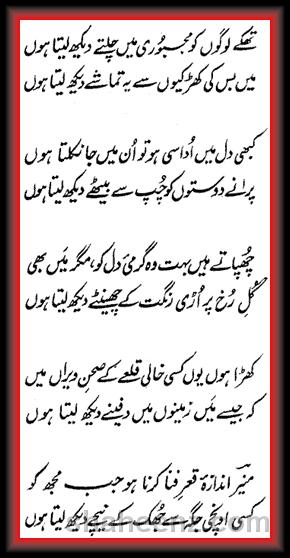 تھکے لوگوں کو مجبوری میں چلتے دیکھ لیتا ہوں
میں بس کی کھڑکیوں سے یہ تماشے دیکھ لیتا ہوں
کبھی دل میں اُداسی ہو تو اُن میں جا نکلتا ہوں
پرانے دوستوں کو چُپ سے بیٹھے دیکھ لیتا ہوں
چھپاتے ہیں بہت وہ گرمیٔ دل کو، مگر میں بھی
گُلِ رُخ پر اُڑی رنگت کے چھینٹے دیکھ لیتا ہوں
کھڑا ہوں یوں کسی خالی قلعے کے صحنِ ویراں میں
کہ جیسے میں زمینوں میں دفینے دیکھ لیتا ہوں
منیر اندازۂ قعرِ فنا کرنا ہو جب مجھ کو
کسی اونچی جگہ سے جھک کے نیچے دیکھ لیتا ہوں